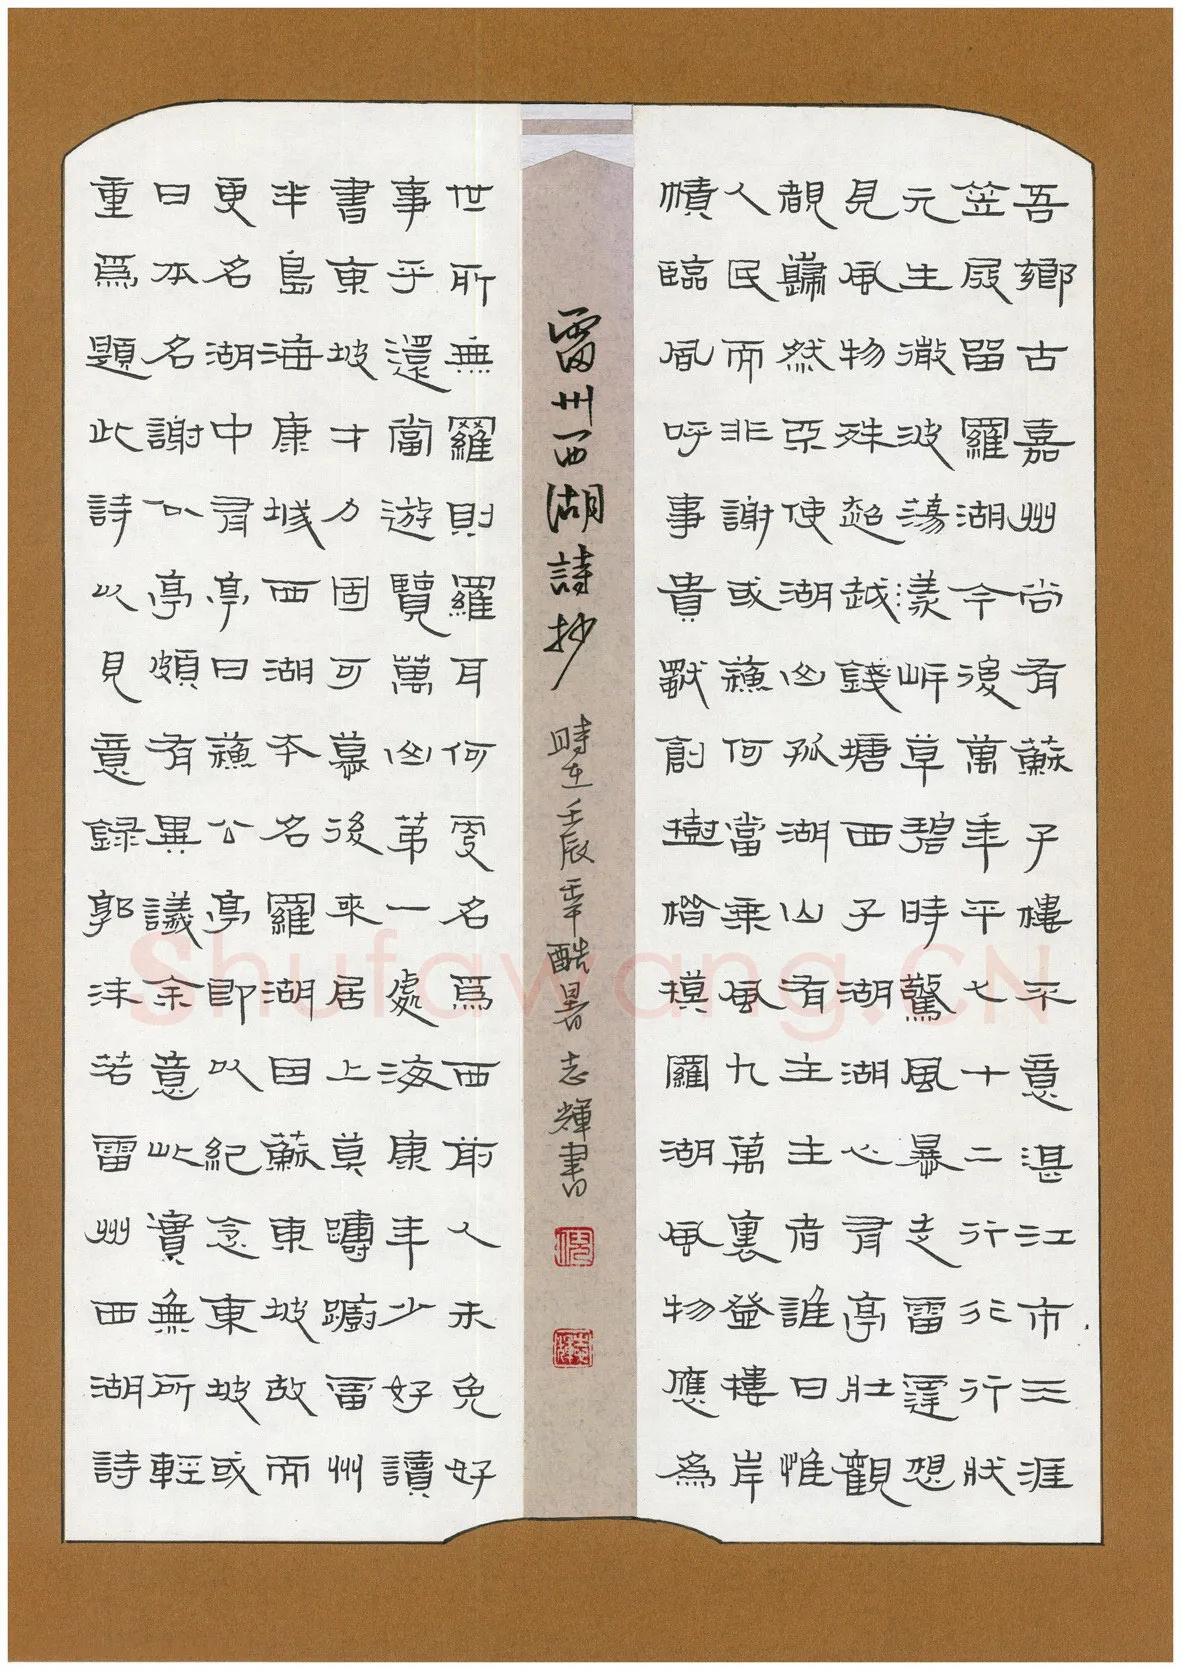 吾鄉古嘉州尚有蘇子樓不意湛江市三涯
笠屐留羅湖今後萬年平七十二行行行狀
元生徹波蕩漾岍草碧時驚風暴走雷霆想
見風物殊越越錢塘西子湖湖心有亭壯觀
覩巋然亞使湖山孤湖山有主主者誰曰惟
人民而非謝或蘓何當乘風九萬裏登樓岸
幘臨風呼事貴猷創樹楷模羅湖風物應為
雷州西湖詩抄
時在壬辰年酷暑志輝書
世所無羅則羅耳何處名爲西前人未免好
事乎還當遊覽萬山第一處海康年少好讀
書東坡才力固可慕後來居上莫躊躕雷州
半島海康城西湖本名羅湖因蘇東坡故而
更名湖中有亭曰蘓公亭即以紀念東坡或
曰本名謝公亭頗有異議余意此實無所輕
重爲題此詩以見意録郭沫若雷州西湖詩
Shufawang.CN